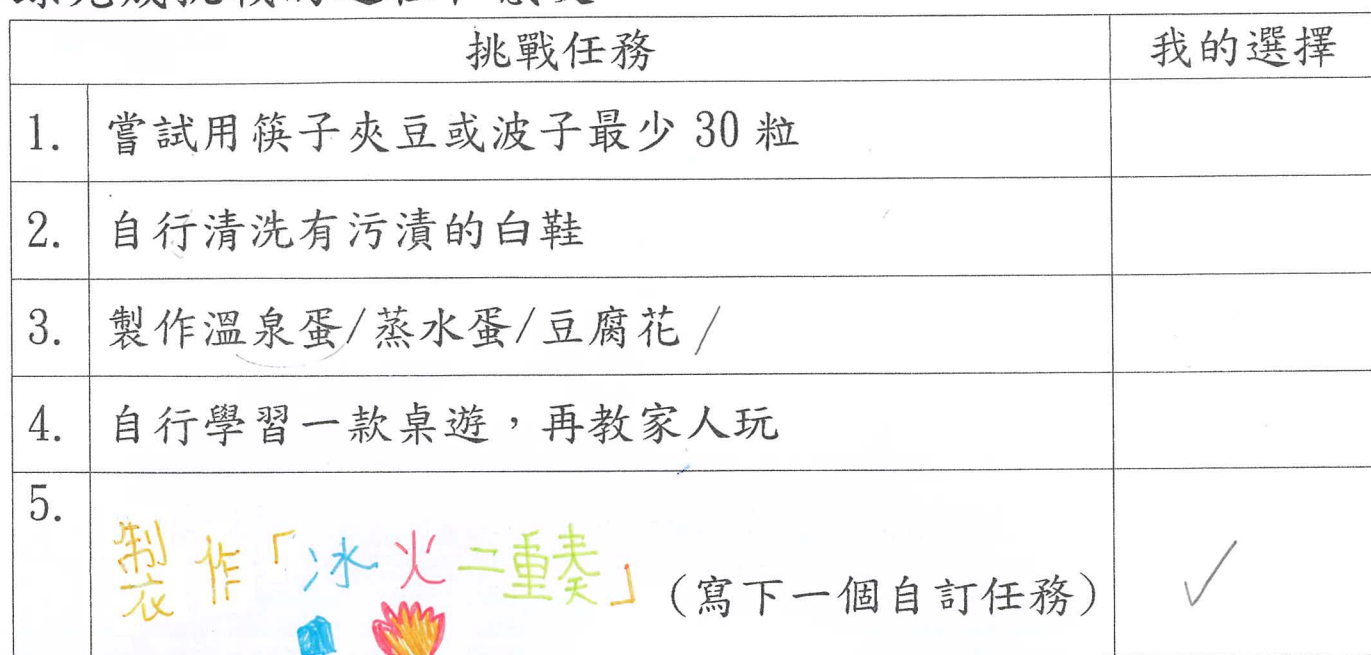 挑戰任務 我的選擇
1. 嘗試用筷子夾豆或波子最少 30 粒
2. 自行清洗有污漬的白鞋
3. 製作溫泉蛋/蒸水蛋/豆腐花 /
4. 自行學習一款桌遊，再教家人玩
5. 製作「冰火二重奏」(寫下一個自訂任務) ✓